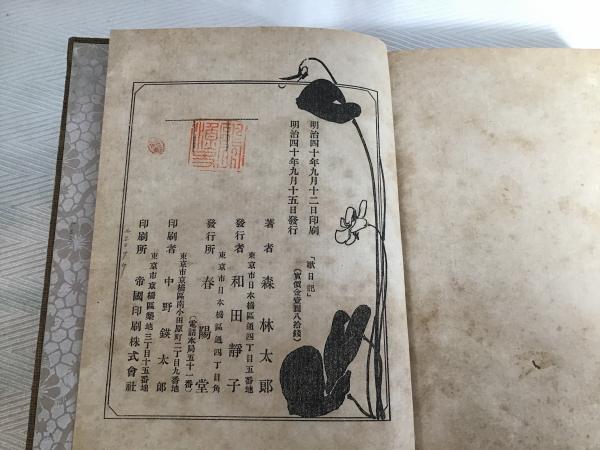 明治四十年九月十二日印刷
明治四十年九月十五日發行
「歌日記」
(實價金壹圓八拾錢)
著者 森林太郎
東京市日本橋區通四丁目五番地
發行者 和田靜子
東京市日本橋區通四丁目角
發行所 春陽堂
(電話本局五十一番)
東京市京橋區南小田原町二丁目九番地
印刷者 中野鍈太郎
東京市京橋區築地三丁目十五番地
印刷所 帝國印刷株式會社